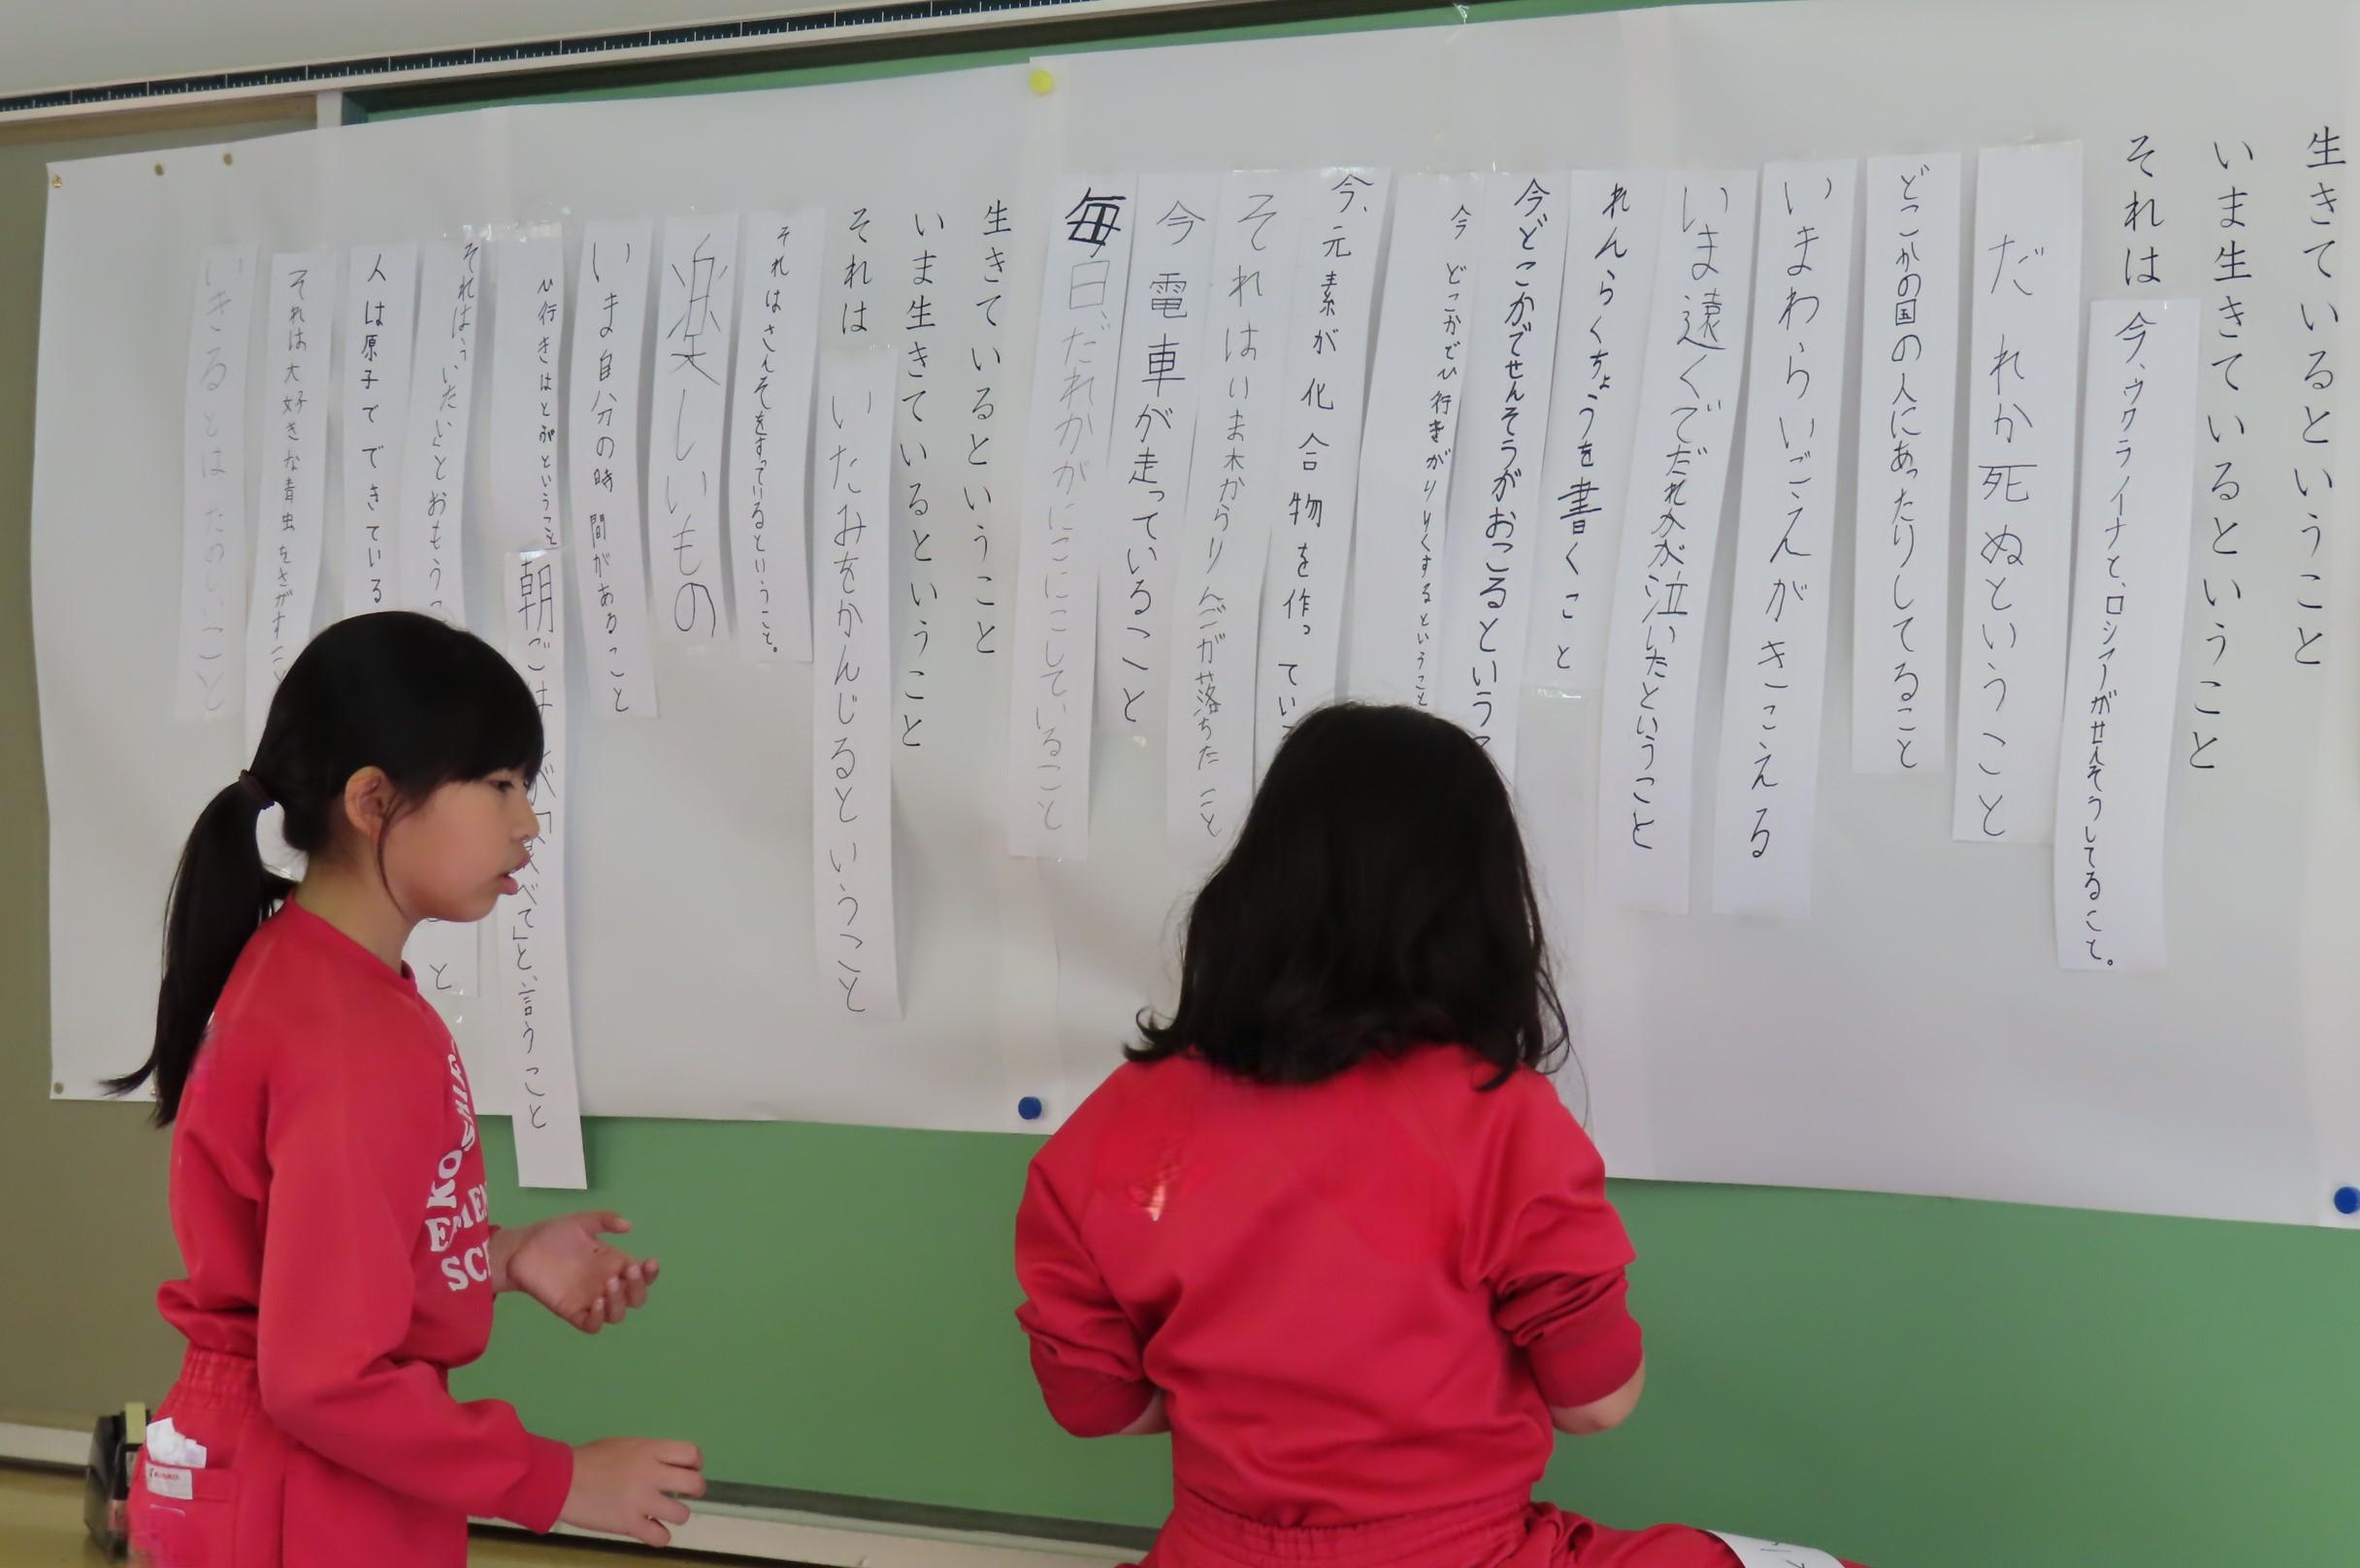 生きているということ
いま生きているということ
それは
今、ウクライーナと、ロシアーがせんそうしてること。
だれか死ぬということ
どこかの国の人にあったりしてること
いまわらいごえがきこえる
いま遠くでだれかが泣いたということ
れんらくちょうを書くこと
今どこかでせんそうがおこるという
今どこかでひ行きがりりくするということ
今、元素が化合物を作ってい
それはいま木からりんごが落ちたこと
今電車が走っていること
毎日、だれかがにこにこしていること
生きているということ
いま生きているということ
それは
いたみをかんじるということ
それはさんそをすっているということ。
楽しいもの
いま自分の時間があること
ひ行きはとぶということ
朝ごは
べて」と、言うこと
それは、「いたい」とおもう
と
人は原子でできている
それは大好きな青虫をさがすこと
いきるとはたのしいこと
KOSHI
ELEMEN
SC